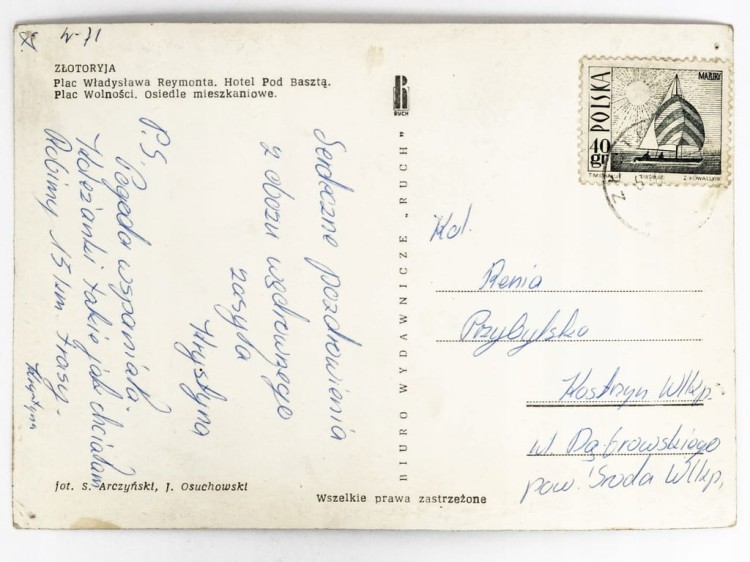 17-4
ZŁOTORYJA
Plac Władysława Reymonta. Hotel Pod Basztą.
Plac Wolności. Osiedle mieszkaniowe.
Serdeczne pozdrowienia
z obozu wędrownego
zasyła
Krystyna
P.S.
Pogoda wspaniała.
Koleżanki takie jak chciałam
Robimy 15 km trasy.
Krystyna
fot. S. Arczyński, J. Osuchowski
RUCH
BIURO WYDAWNICZE „RUCH”
Wszelkie prawa zastrzeżone
POLSKA
MAZURY
40 gr
Kol.
Renia
Przybylska
Kostrzyn Wlkp.
ul. Dąbrowskiego
pow. Środa Wlkp.